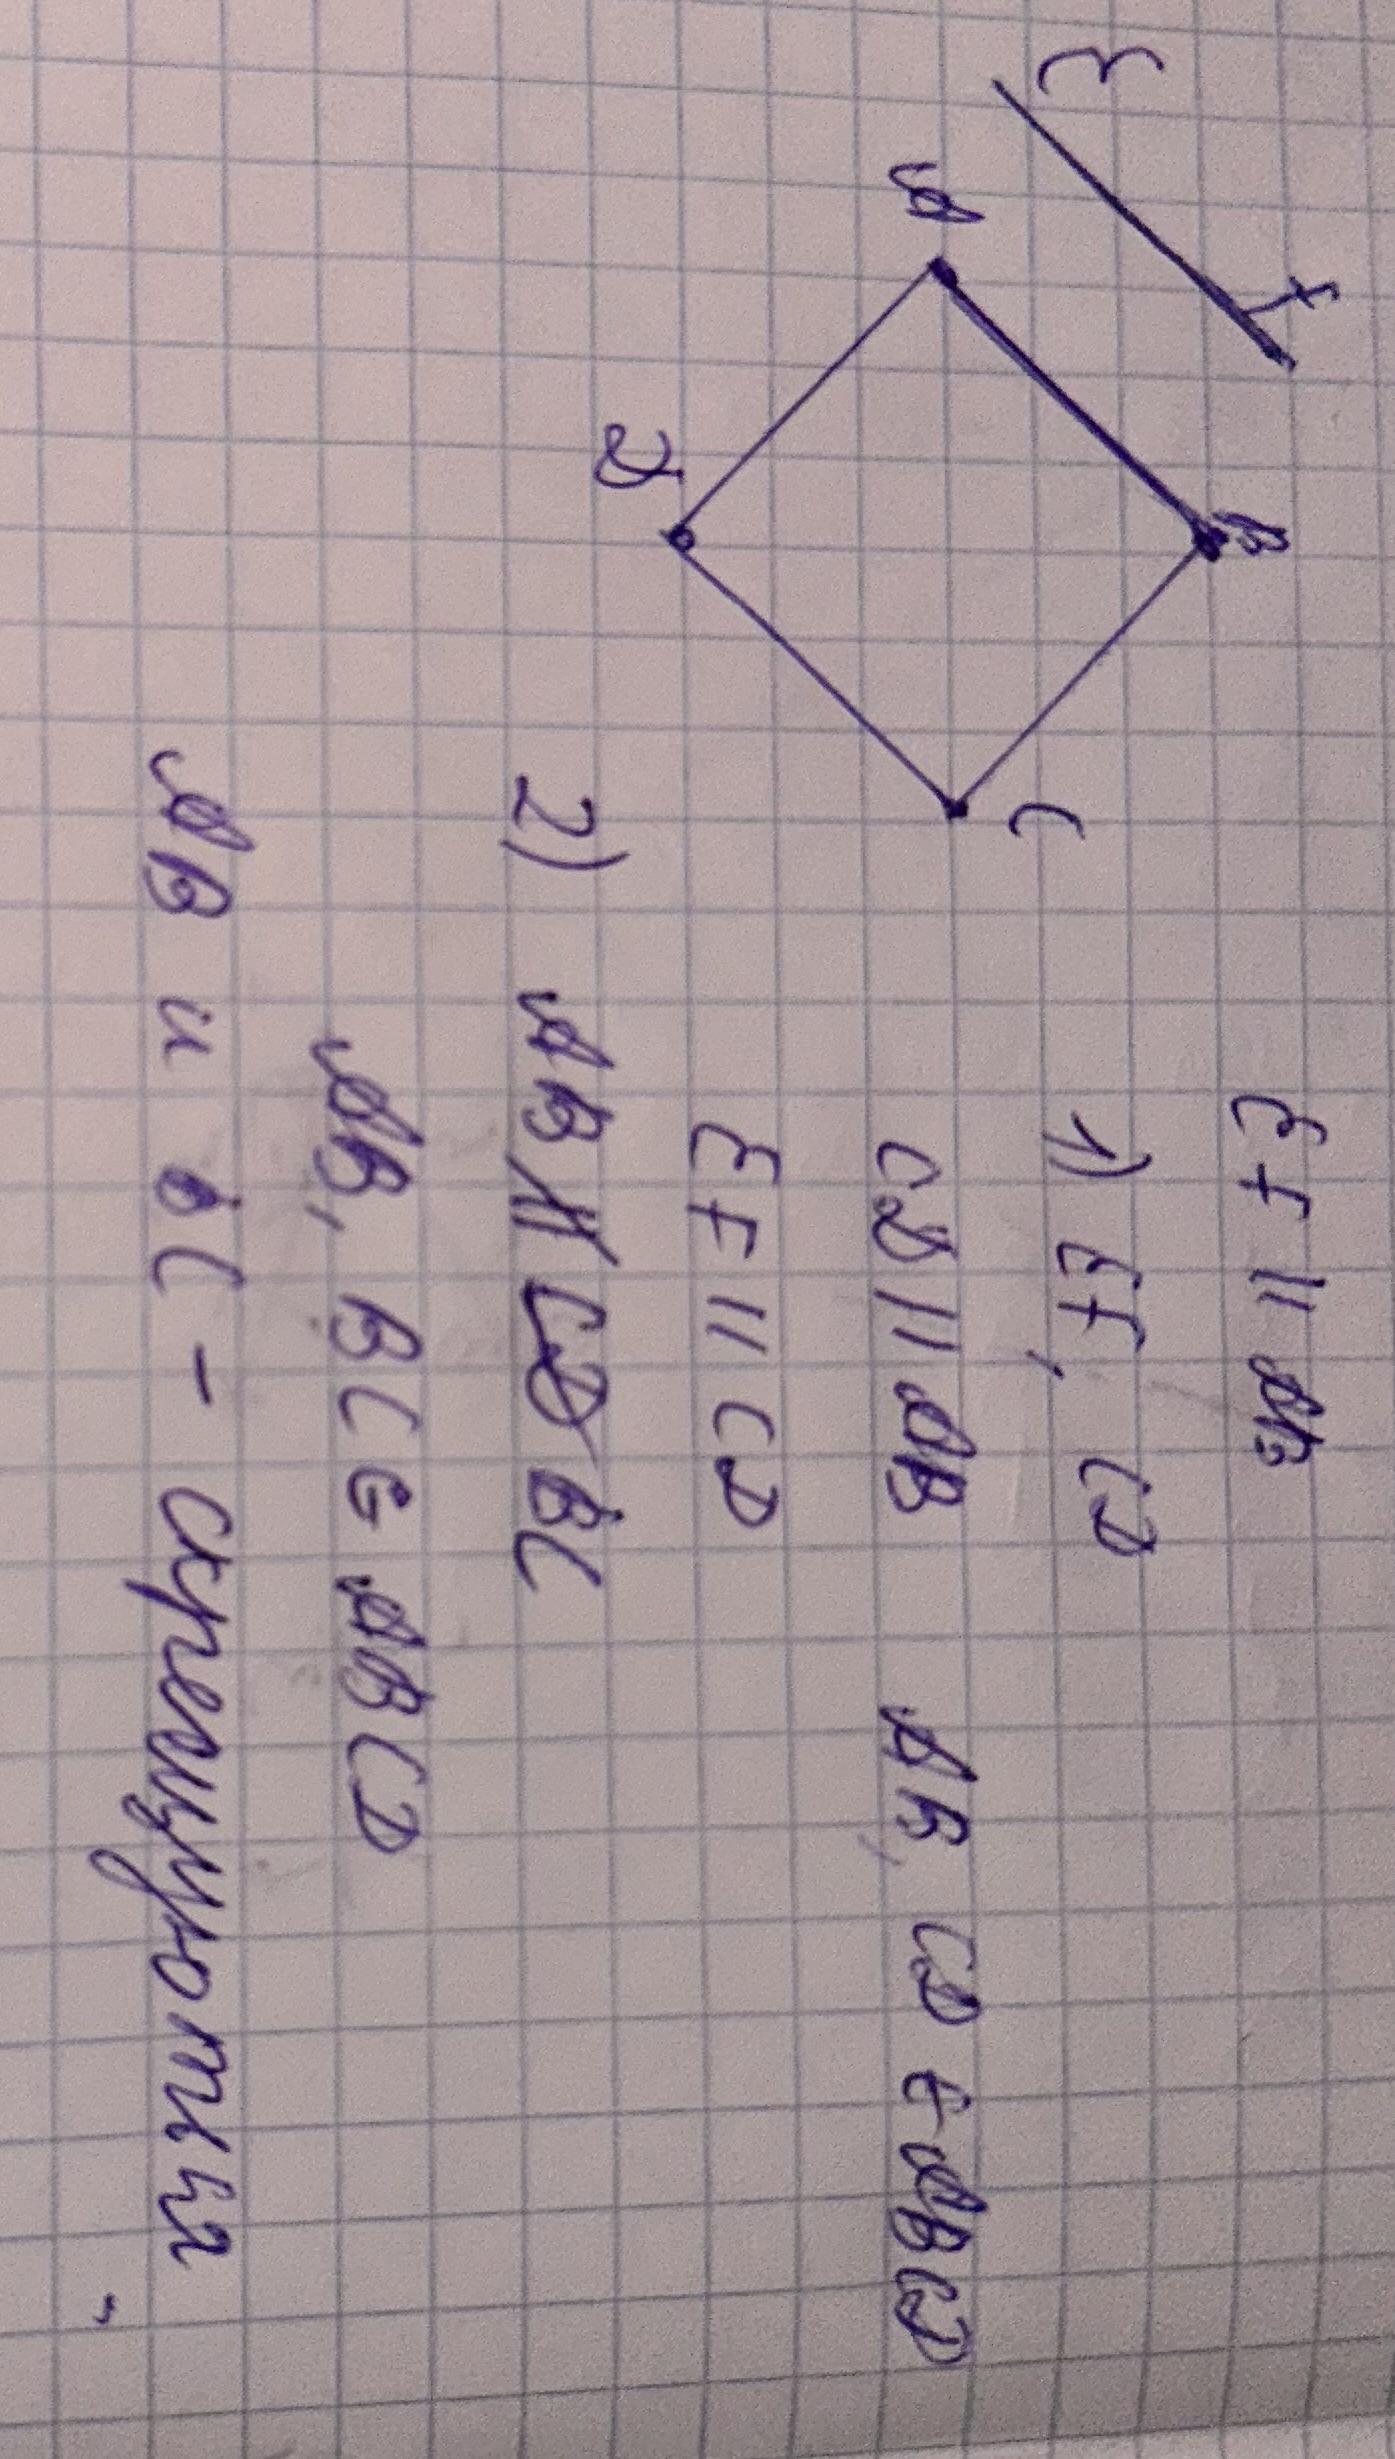 E
F
A
B
C
D
EF || AB
1) EF, CD
CD || AB AB, CD ∈ ABCD
EF || CD
2) AB ∦ BC
AB, BC ∈ ABCD
AB и BC - скрещуютця